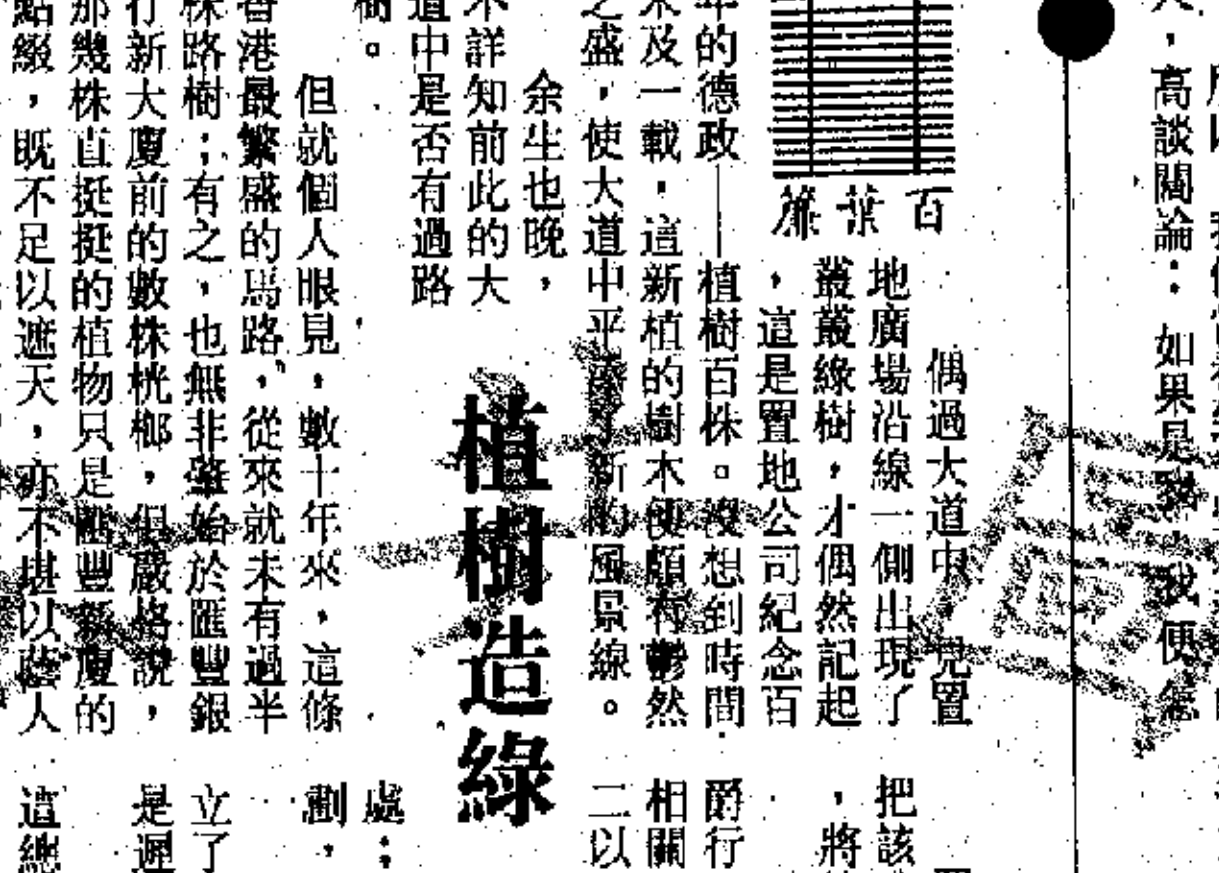 人，高談闊論：如果是我，我便怎
百葉簾
植樹造綠
偶過大道中，見置
地廣場沿線一側出現了
叢叢綠樹，才偶然記起
，這是置地公司紀念百
年的德政——植樹百株。沒想到時間
未及一載，這新植的樹木便頗有鬱然
之盛，使大道中平添了新的風景線。
余生也晚，
不詳知前此的大
道中是否有過路
樹。
但就個人眼見，數十年來，這條
香港最繁盛的馬路，從來就未有過半
株路樹；有之，也無非肇始於匯豐銀
行新大廈前的數株桄榔，但嚴格說，
那幾株直挺挺的植物只是匯豐新廈的
點綴，既不足以遮天，亦不堪以蔭人
把該
，將
爵行
相關
二以
處：
劃，
立了
是遲
這總